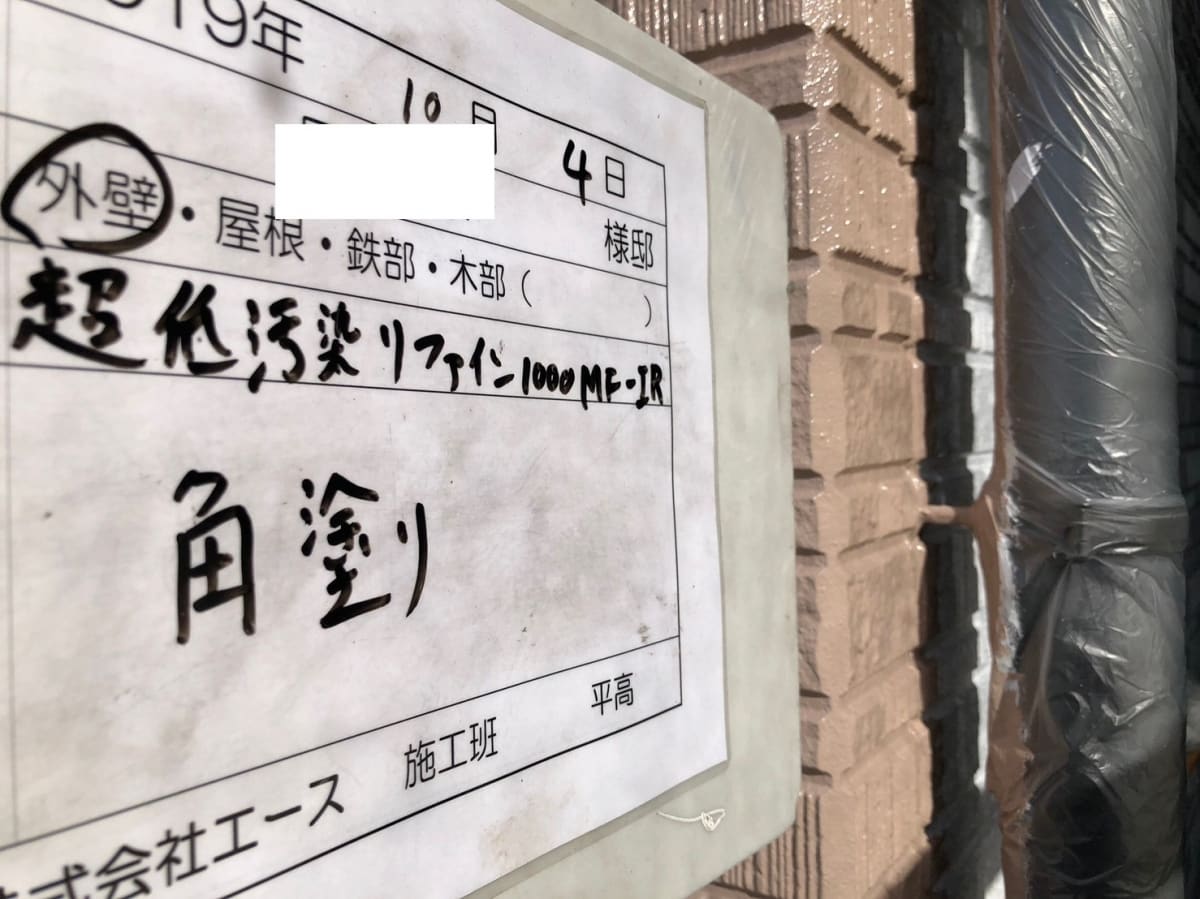 019年 10月 4日
様邸
外壁・屋根・鉄部・木部( )
超低汚染リファイン1000MF-IR
角塗り
式会社エース 施工班 平高